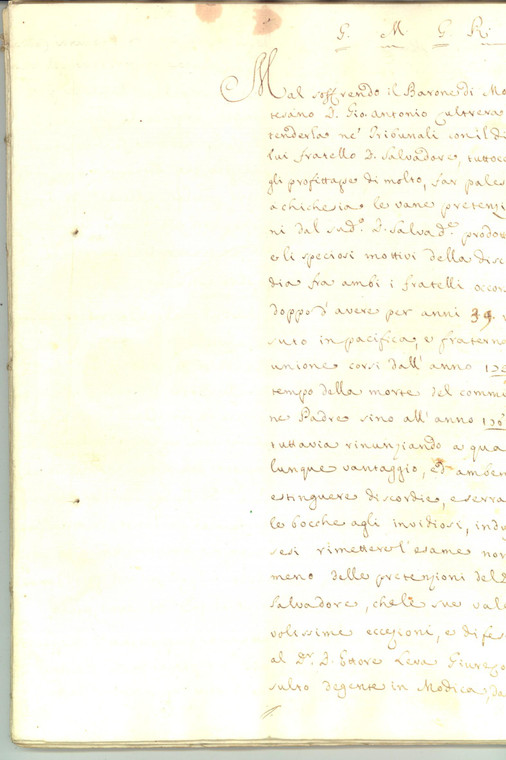 G. M. G. R.
Mal soffrendo il Barone di Mo
tesano D. Gio. Antonio Cultrera
tenderla ne' Tribunali con il di
lui fratello D. Salvadore, tuttoc
gli profittasse di molto, far pales
a chichesia le vane pretenzi
ni dal sud.º D. Salvad.e prodo
e li speciosi mottivi della disc
dia fra ambi i fratelli occor
doppo d'avere per anni 39.
suto in pacifica, e fraterna
unione corsi dall'anno
tempo della morte del commu
ne Padre sino all'anno
tuttavia rinunziando a qua
lunque vantaggio, ed ambend
estinguere discordie, e serra
le bocche agli invidiosi, indu
sesi rimettere l'esame non
meno delle pretenzioni del
Salvadore, che le sue vale
volissime eccezioni, e difes
al D.r D. Ettore Leva Giureco
sulto degente in Modica, da